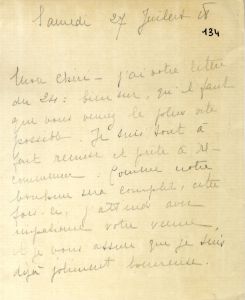 Samedi 27 Juillet 18
134
Mon chéri – j'ai votre lettre
du 24 : bien sûr, qu'il faut
que vous veniez le plus vite
possible. Je suis tout à
fait remise et prête à re-
commencer. Comme notre
bonheur sera complet, cette
fois-ci, j'attends avec
impatience votre venue,
et je vous assure que je suis
déjà joliment heureuse.